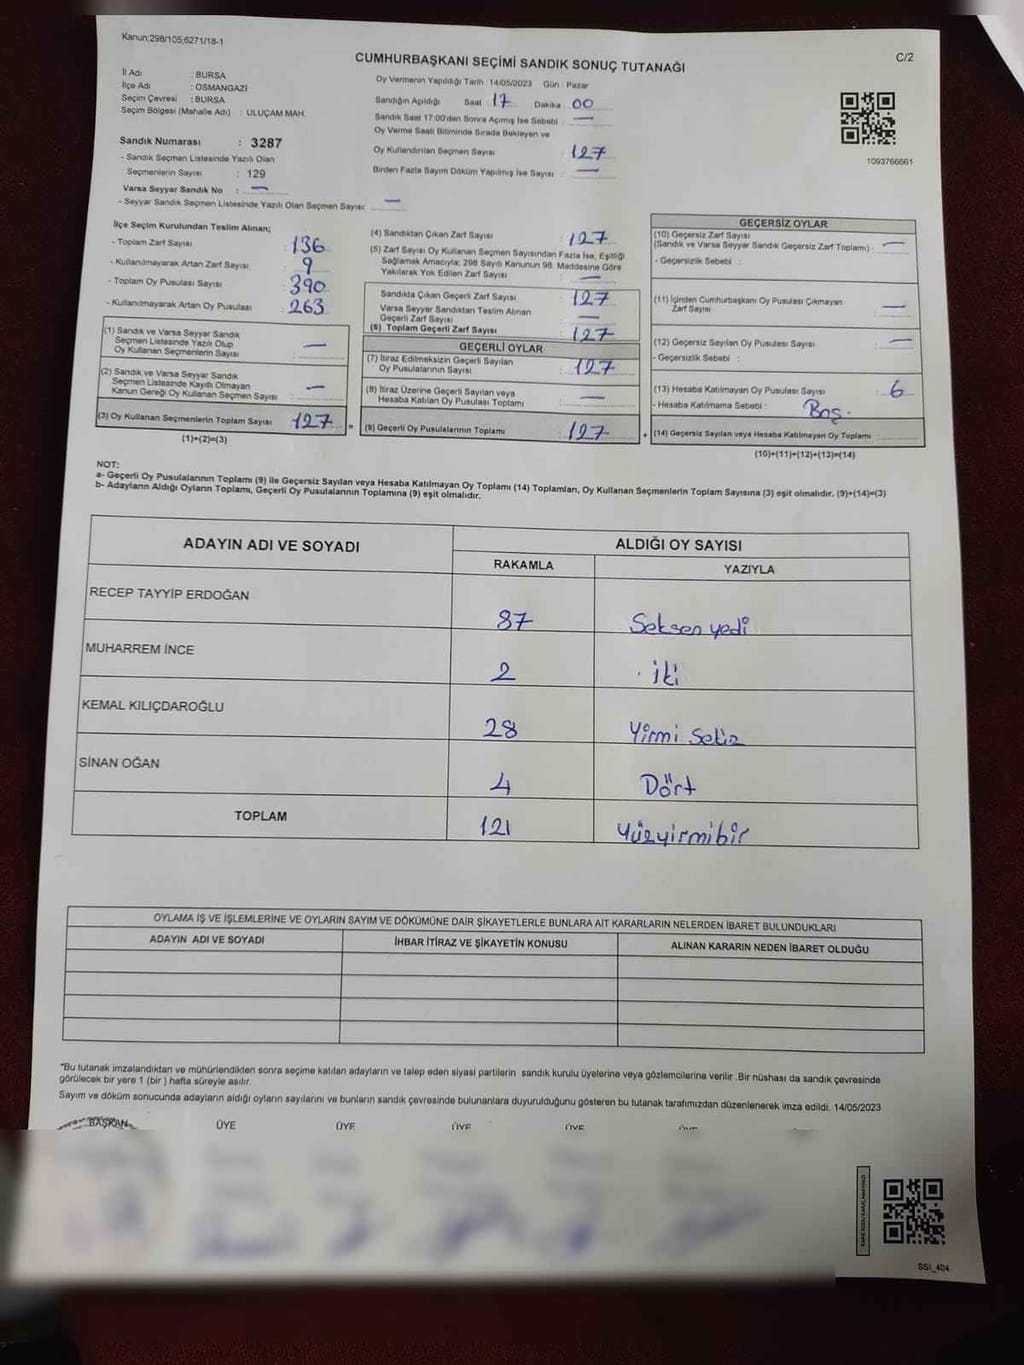 Kanun;298/105;6271/18-1
C/2
CUMHURBAŞKANI SEÇİMİ SANDIK SONUÇ TUTANAĞI
İl Adı : BURSA
İlçe Adı : OSMANGAZİ
Seçim Çevresi : BURSA
Seçim Bölgesi (Mahalle Adı) : ULUÇAM MAH.
Sandık Numarası : 3287
- Sandık Seçmen Listesinde Yazılı Olan
Seçmenlerin Sayısı : 129
Varsa Seyyar Sandık No : —
- Seyyar Sandık Seçmen Listesinde Yazılı Olan Seçmen Sayısı: —
Oy Vermenin Yapıldığı Tarih : 14/05/2023 Gün : Pazar
Sandığın Açıldığı Saat : 17 Dakika : 00
Sandık Saat 17:00'den Sonra Açımış İse Sebebi : —
Oy Verme Saati Bitiminde Sırada Bekleyen ve
Oy Kullandırılan Seçmen Sayısı : 127
Birden Fazla Sayım Döküm Yapılmış İse Sayısı : —
1093766661
İlçe Seçim Kurulundan Teslim Alınan;
- Toplam Zarf Sayısı : 136
- Kullanılmayarak Artan Zarf Sayısı : 9
- Toplam Oy Pusulası Sayısı : 390
- Kullanılmayarak Artan Oy Pusulası : 263
(1) Sandık ve Varsa Seyyar Sandık
Seçmen Listesinde Yazılı Olup
Oy Kullanan Seçmenlerin Sayısı : —
(2) Sandık ve Varsa Seyyar Sandık
Seçmen Listesinde Kayıtlı Olmayan
Kanun Gereği Oy Kullanan Seçmen Sayısı : —
(3) Oy Kullanan Seçmenlerin Toplam Sayısı : 127
(1)+(2)=(3)
(4) Sandıktan Çıkan Zarf Sayısı : 127
(5) Zarf Sayısı Oy Kullanan Seçmen Sayısından Fazla İse, Eşitliği
Sağlamak Amacıyla; 298 Sayılı Kanunun 98. Maddesine Göre
Yakılarak Yok Edilen Zarf Sayısı : —
Sandıkta Çıkan Geçerli Zarf Sayısı : 127
Varsa Seyyar Sandıktan Teslim Alınan
Geçerli Zarf Sayısı : —
(6) Toplam Geçerli Zarf Sayısı : 127
GEÇERLİ OYLAR
(7) İtiraz Edilmeksizin Geçerli Sayılan
Oy Pusulalarının Sayısı : 127
(8) İtiraz Üzerine Geçerli Sayılan veya
Hesaba Katılan Oy Pusulası Toplamı : —
(9) Geçerli Oy Pusulalarının Toplamı : 127
GEÇERSİZ OYLAR
(10) Geçersiz Zarf Sayısı
(Sandık ve Varsa Seyyar Sandık Geçersiz Zarf Toplamı) : —
- Geçersizlik Sebebi :
(11) İçinden Cumhurbaşkanı Oy Pusulası Çıkmayan
Zarf Sayısı : —
(12) Geçersiz Sayılan Oy Pusulası Sayısı : —
- Geçersizlik Sebebi :
(13) Hesaba Katılmayan Oy Pusulası Sayısı : 6
- Hesaba Katılmama Sebebi : Boş.
(14) Geçersiz Sayılan veya Hesaba Katılmayan Oy Toplamı :
(10)+(11)+(12)+(13)=(14)
NOT:
a- Geçerli Oy Pusulalarının Toplamı (9) ile Geçersiz Sayılan veya Hesaba Katılmayan Oy Toplamı (14) Toplamları, Oy Kullanan Seçmenlerin Toplam Sayısına (3) eşit olmalıdır. (9)+(14)=(3)
b- Adayların Aldığı Oyların Toplamı, Geçerli Oy Pusulalarının Toplamına (9) eşit olmalıdır.
ADAYIN ADI VE SOYADI ALDIĞI OY SAYISI
RAKAMLA YAZIYLA
RECEP TAYYİP ERDOĞAN 87 Seksen yedi
MUHARREM İNCE 2 İki
KEMAL KILIÇDAROĞLU 28 Yirmi Sekiz
SİNAN OĞAN 4 Dört
TOPLAM 121 Yüzyirmibir
OYLAMA İŞ VE İŞLEMLERİNE VE OYLARIN SAYIM VE DÖKÜMÜNE DAİR ŞİKAYETLERLE BUNLARA AİT KARARLARIN NELERDEN İBARET BULUNDUKLARI
ADAYIN ADI VE SOYADI İHBAR İTİRAZ VE ŞİKAYETİN KONUSU ALINAN KARARIN NEDEN İBARET OLDUĞU
"Bu tutanak imzalandıktan ve mühürlendikten sonra seçime katılan adayların ve talep eden siyasi partilerin sandık kurulu üyelerine veya gözlemcilerine verilir .Bir nüshası da sandık çevresinde
görülecek bir yere 1 (bir ) hafta süreyle asılır.
Sayım ve döküm sonucunda adayların aldığı oyların sayılarını ve bunların sandık çevresinde bulunanlara duyurulduğunu gösteren bu tutanak tarafımızdan düzenlenerek imza edildi. 14/05/2023
BAŞKAN ÜYE ÜYE ÜYE ÜYE
SSI_404